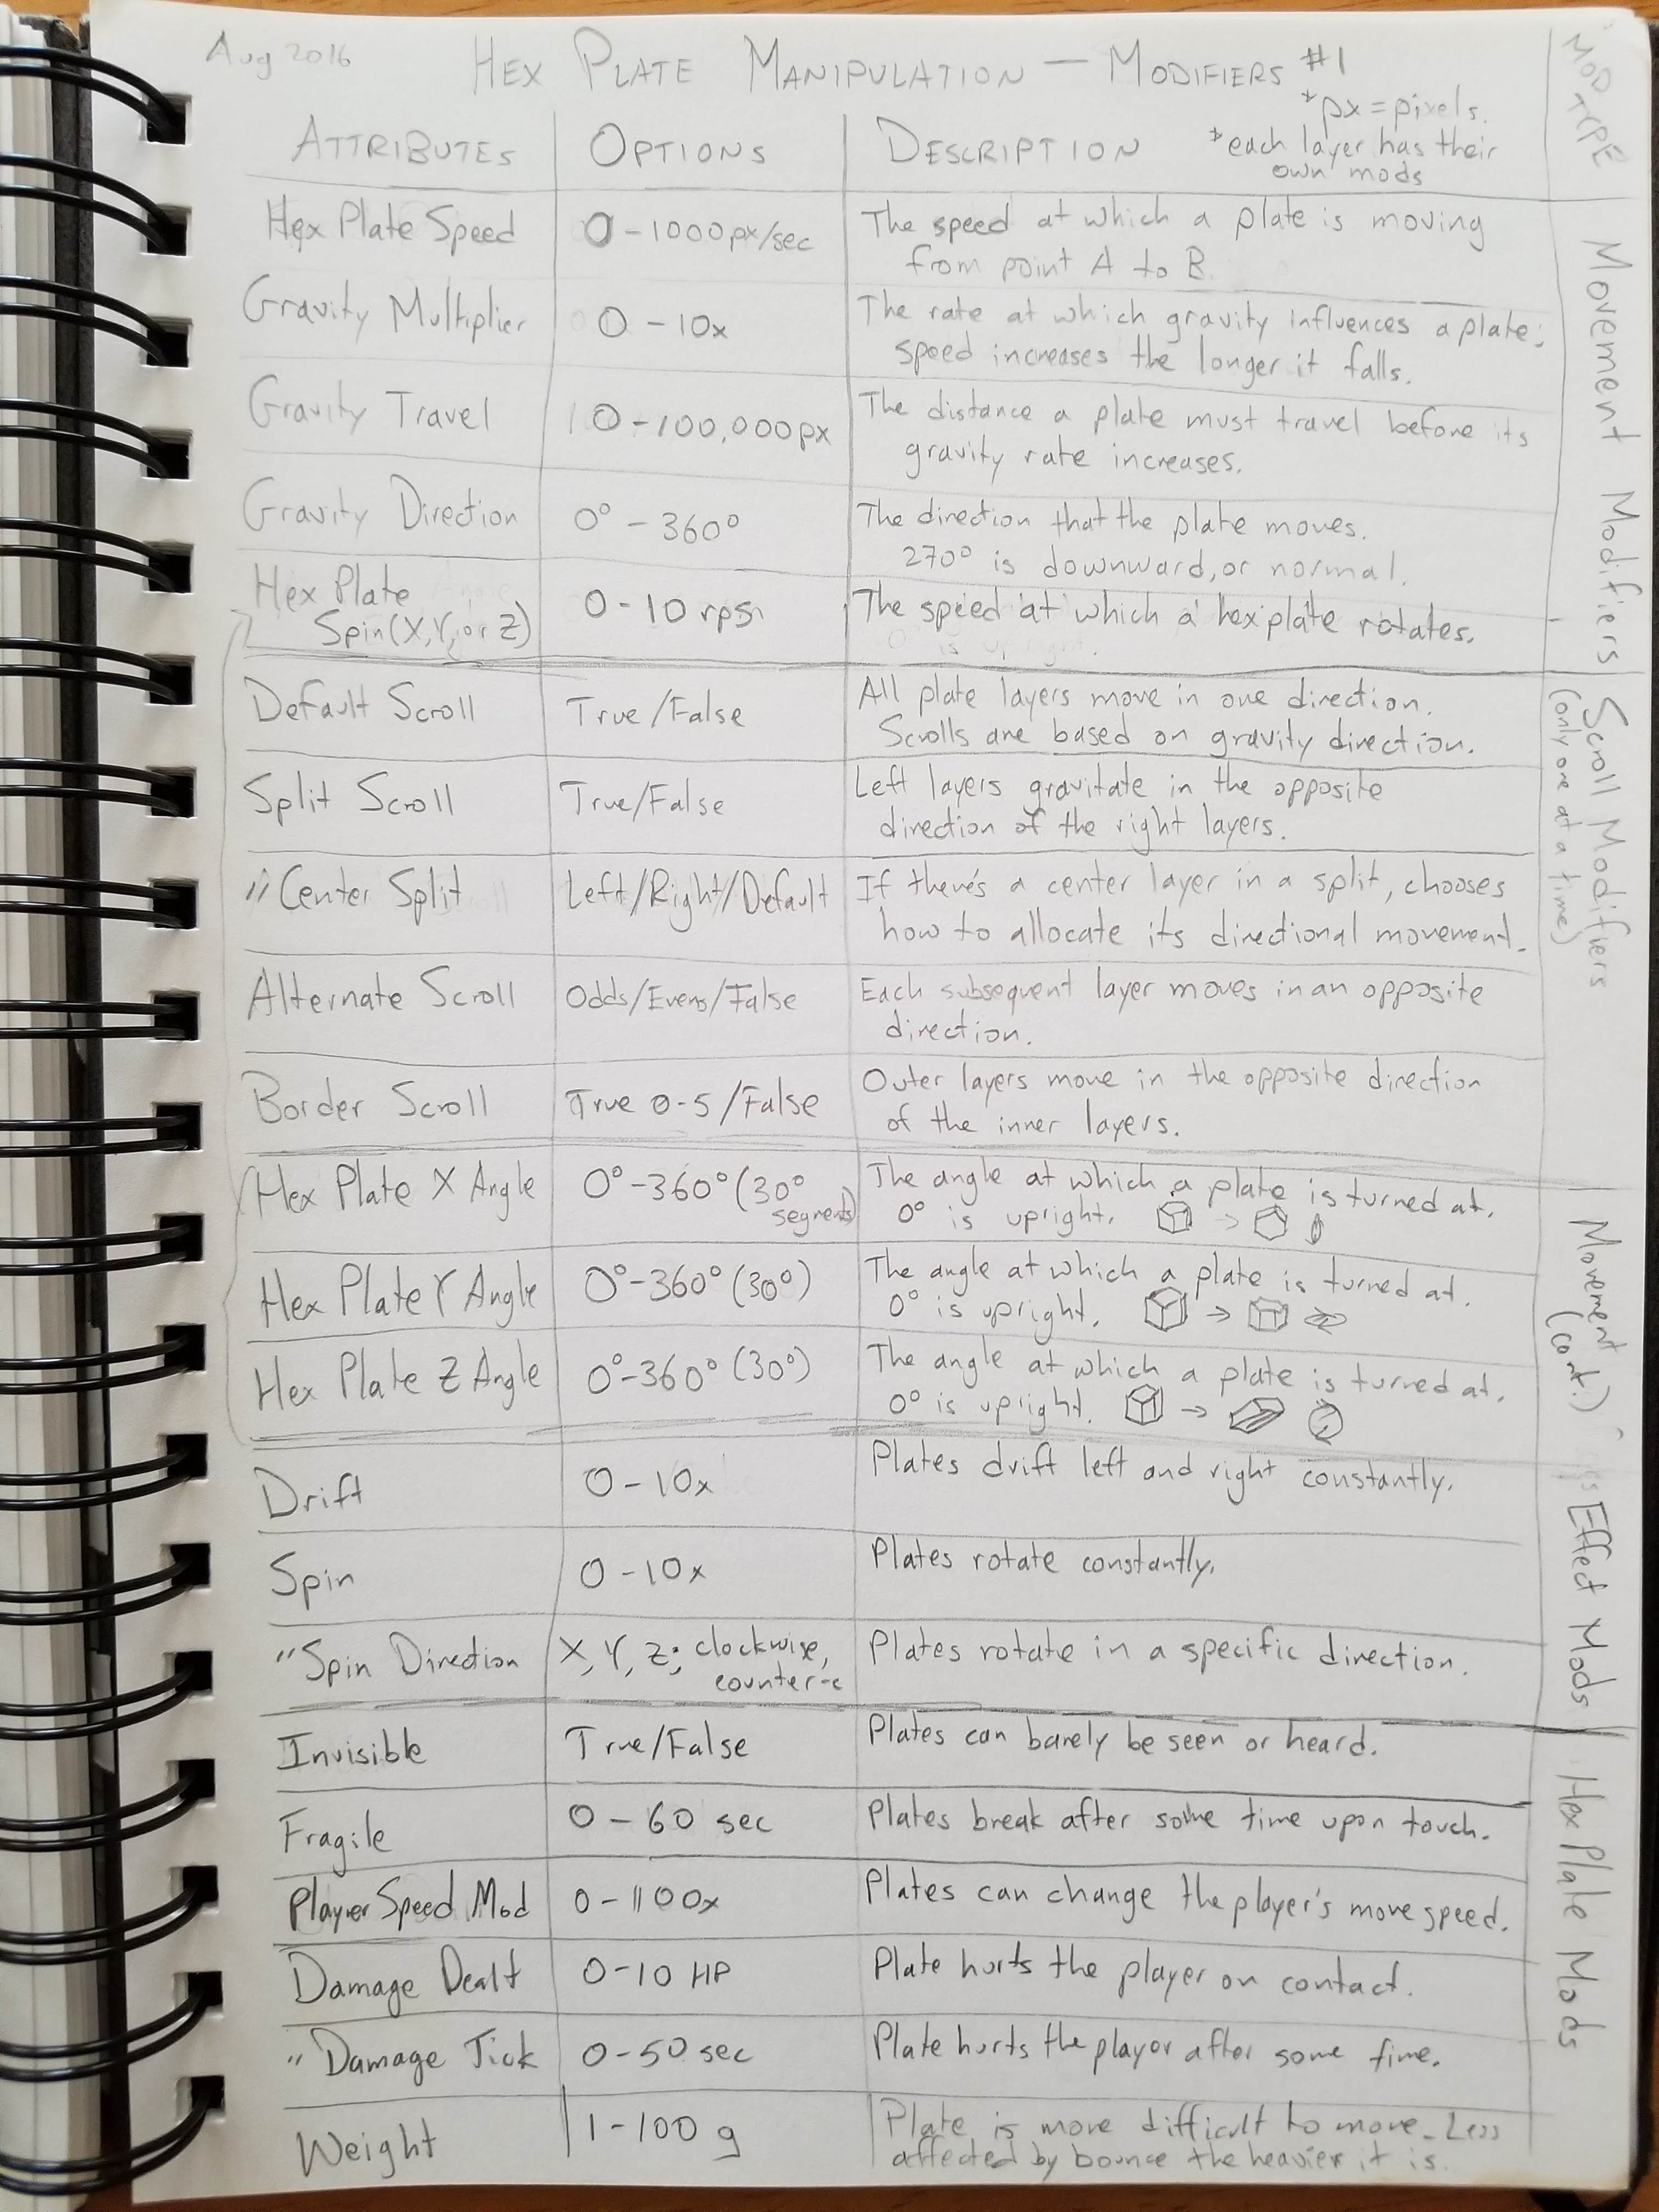 Aug 2016
HEX PLATE MANIPULATION — MODIFIERS #1
*px = pixels.
ATTRIBUTES OPTIONS DESCRIPTION *each layer has their
own mods
MOD TYPE
Hex Plate Speed 0-1000px/sec The speed at which a plate is moving
from point A to B.
Gravity Multiplier 0-10x The rate at which gravity influences a plate;
speed increases the longer it falls.
Gravity Travel 0-100,000px The distance a plate must travel before its
gravity rate increases.
Gravity Direction 0°-360° The direction that the plate moves.
270° is downward, or normal.
Hex Plate 0-10 rpsn The speed at which a hex plate rotates.
Spin (X, Y, or Z)
Movement Modifiers
Default Scroll True/False All plate layers move in one direction.
Scrolls are based on gravity direction.
Split Scroll True/False Left layers gravitate in the opposite
direction of the right layers.
"Center Split Left/Right/Default If there's a center layer in a split, chooses
how to allocate its directional movement.
Alternate Scroll Odds/Evens/False Each subsequent layer moves in an opposite
direction.
Border Scroll True 0-5/False Outer layers move in the opposite direction
of the inner layers.
Scroll Modifiers
(only one at a time)
Hex Plate X Angle 0°-360° (30° The angle at which a plate is turned at.
segments) 0° is upright. →
Hex Plate Y Angle 0°-360° (30°) The angle at which a plate is turned at.
0° is upright. →
Hex Plate Z Angle 0°-360° (30°) The angle at which a plate is turned at.
0° is upright. →
Movement
(cont.)
Drift 0-10x Plates drift left and right constantly.
Spin 0-10x Plates rotate constantly.
"Spin Direction X, Y, Z; clockwise, Plates rotate in a specific direction.
counter-c
Effect Mods
Invisible True/False Plates can barely be seen or heard.
Fragile 0-60 sec Plates break after some time upon touch.
Player Speed Mod 0-100x Plates can change the player's move speed.
Damage Dealt 0-10 HP Plate hurts the player on contact.
"Damage Tick 0-50 sec Plate hurts the player after some time.
Weight 1-100 g Plate is more difficult to move. Less
affected by bounce the heavier it is.
Hex Plate Mods